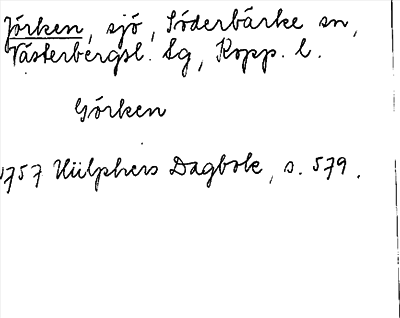 Jörken, sjö, Söderbärke sn,
Västerbergsl. tg, Kopp. l.
Görken
1757 Hülphers Dagbok, s. 579.